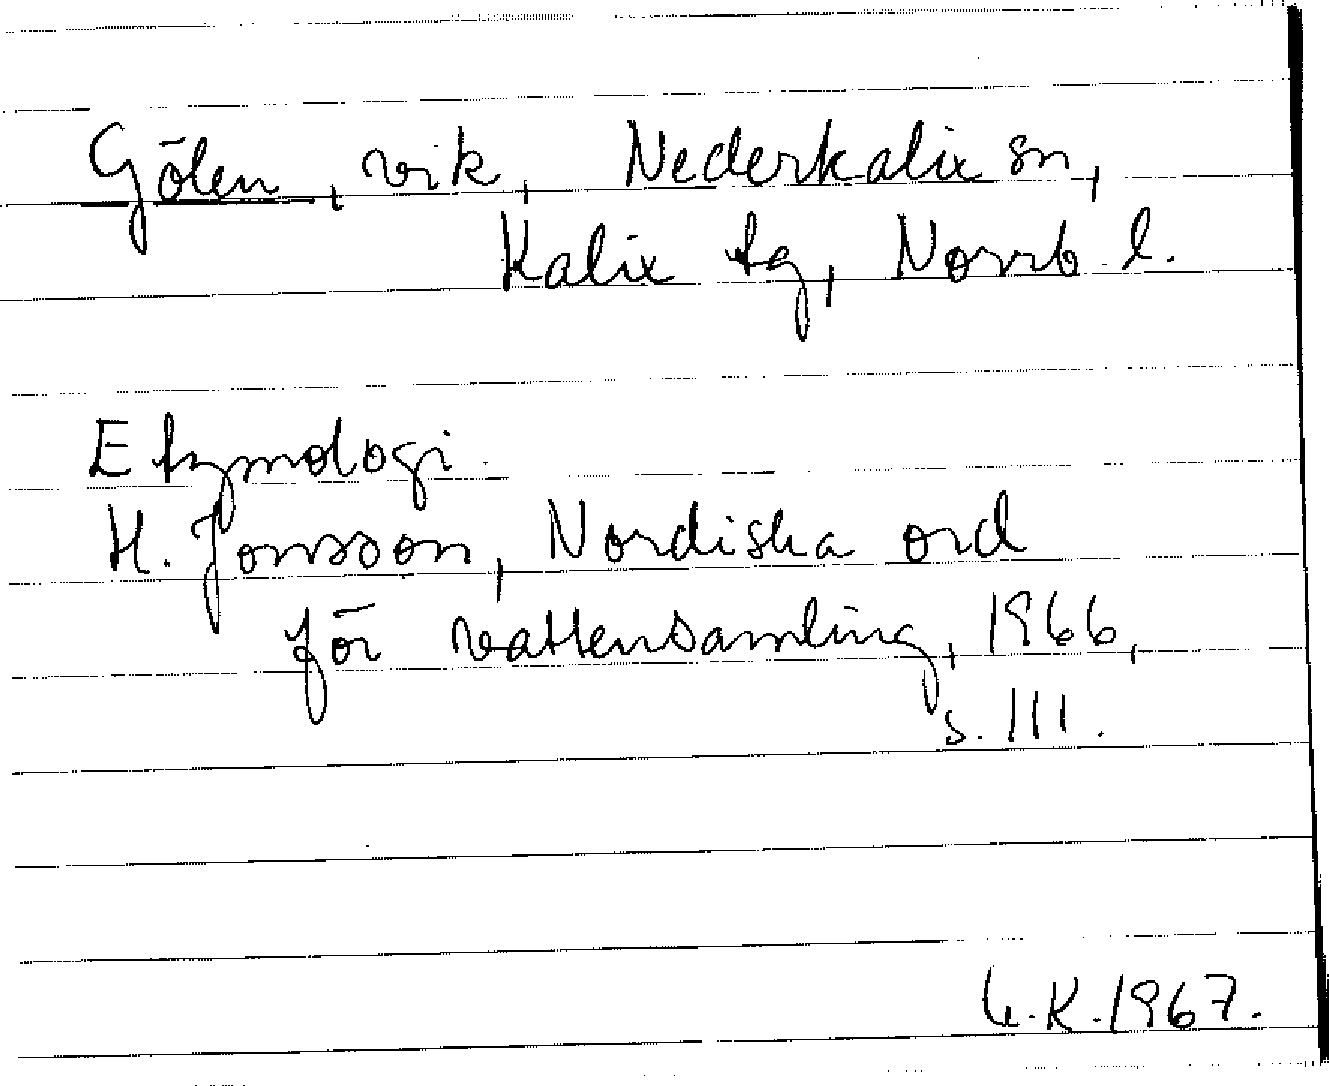 Gölen, vik, Nederkalix sn,
Kalix tg, Norrb l.
Etymologi
H. Jonsson, Nordiska ord
för vattensamling, 1966,
s. 111.
G.K. 1967.